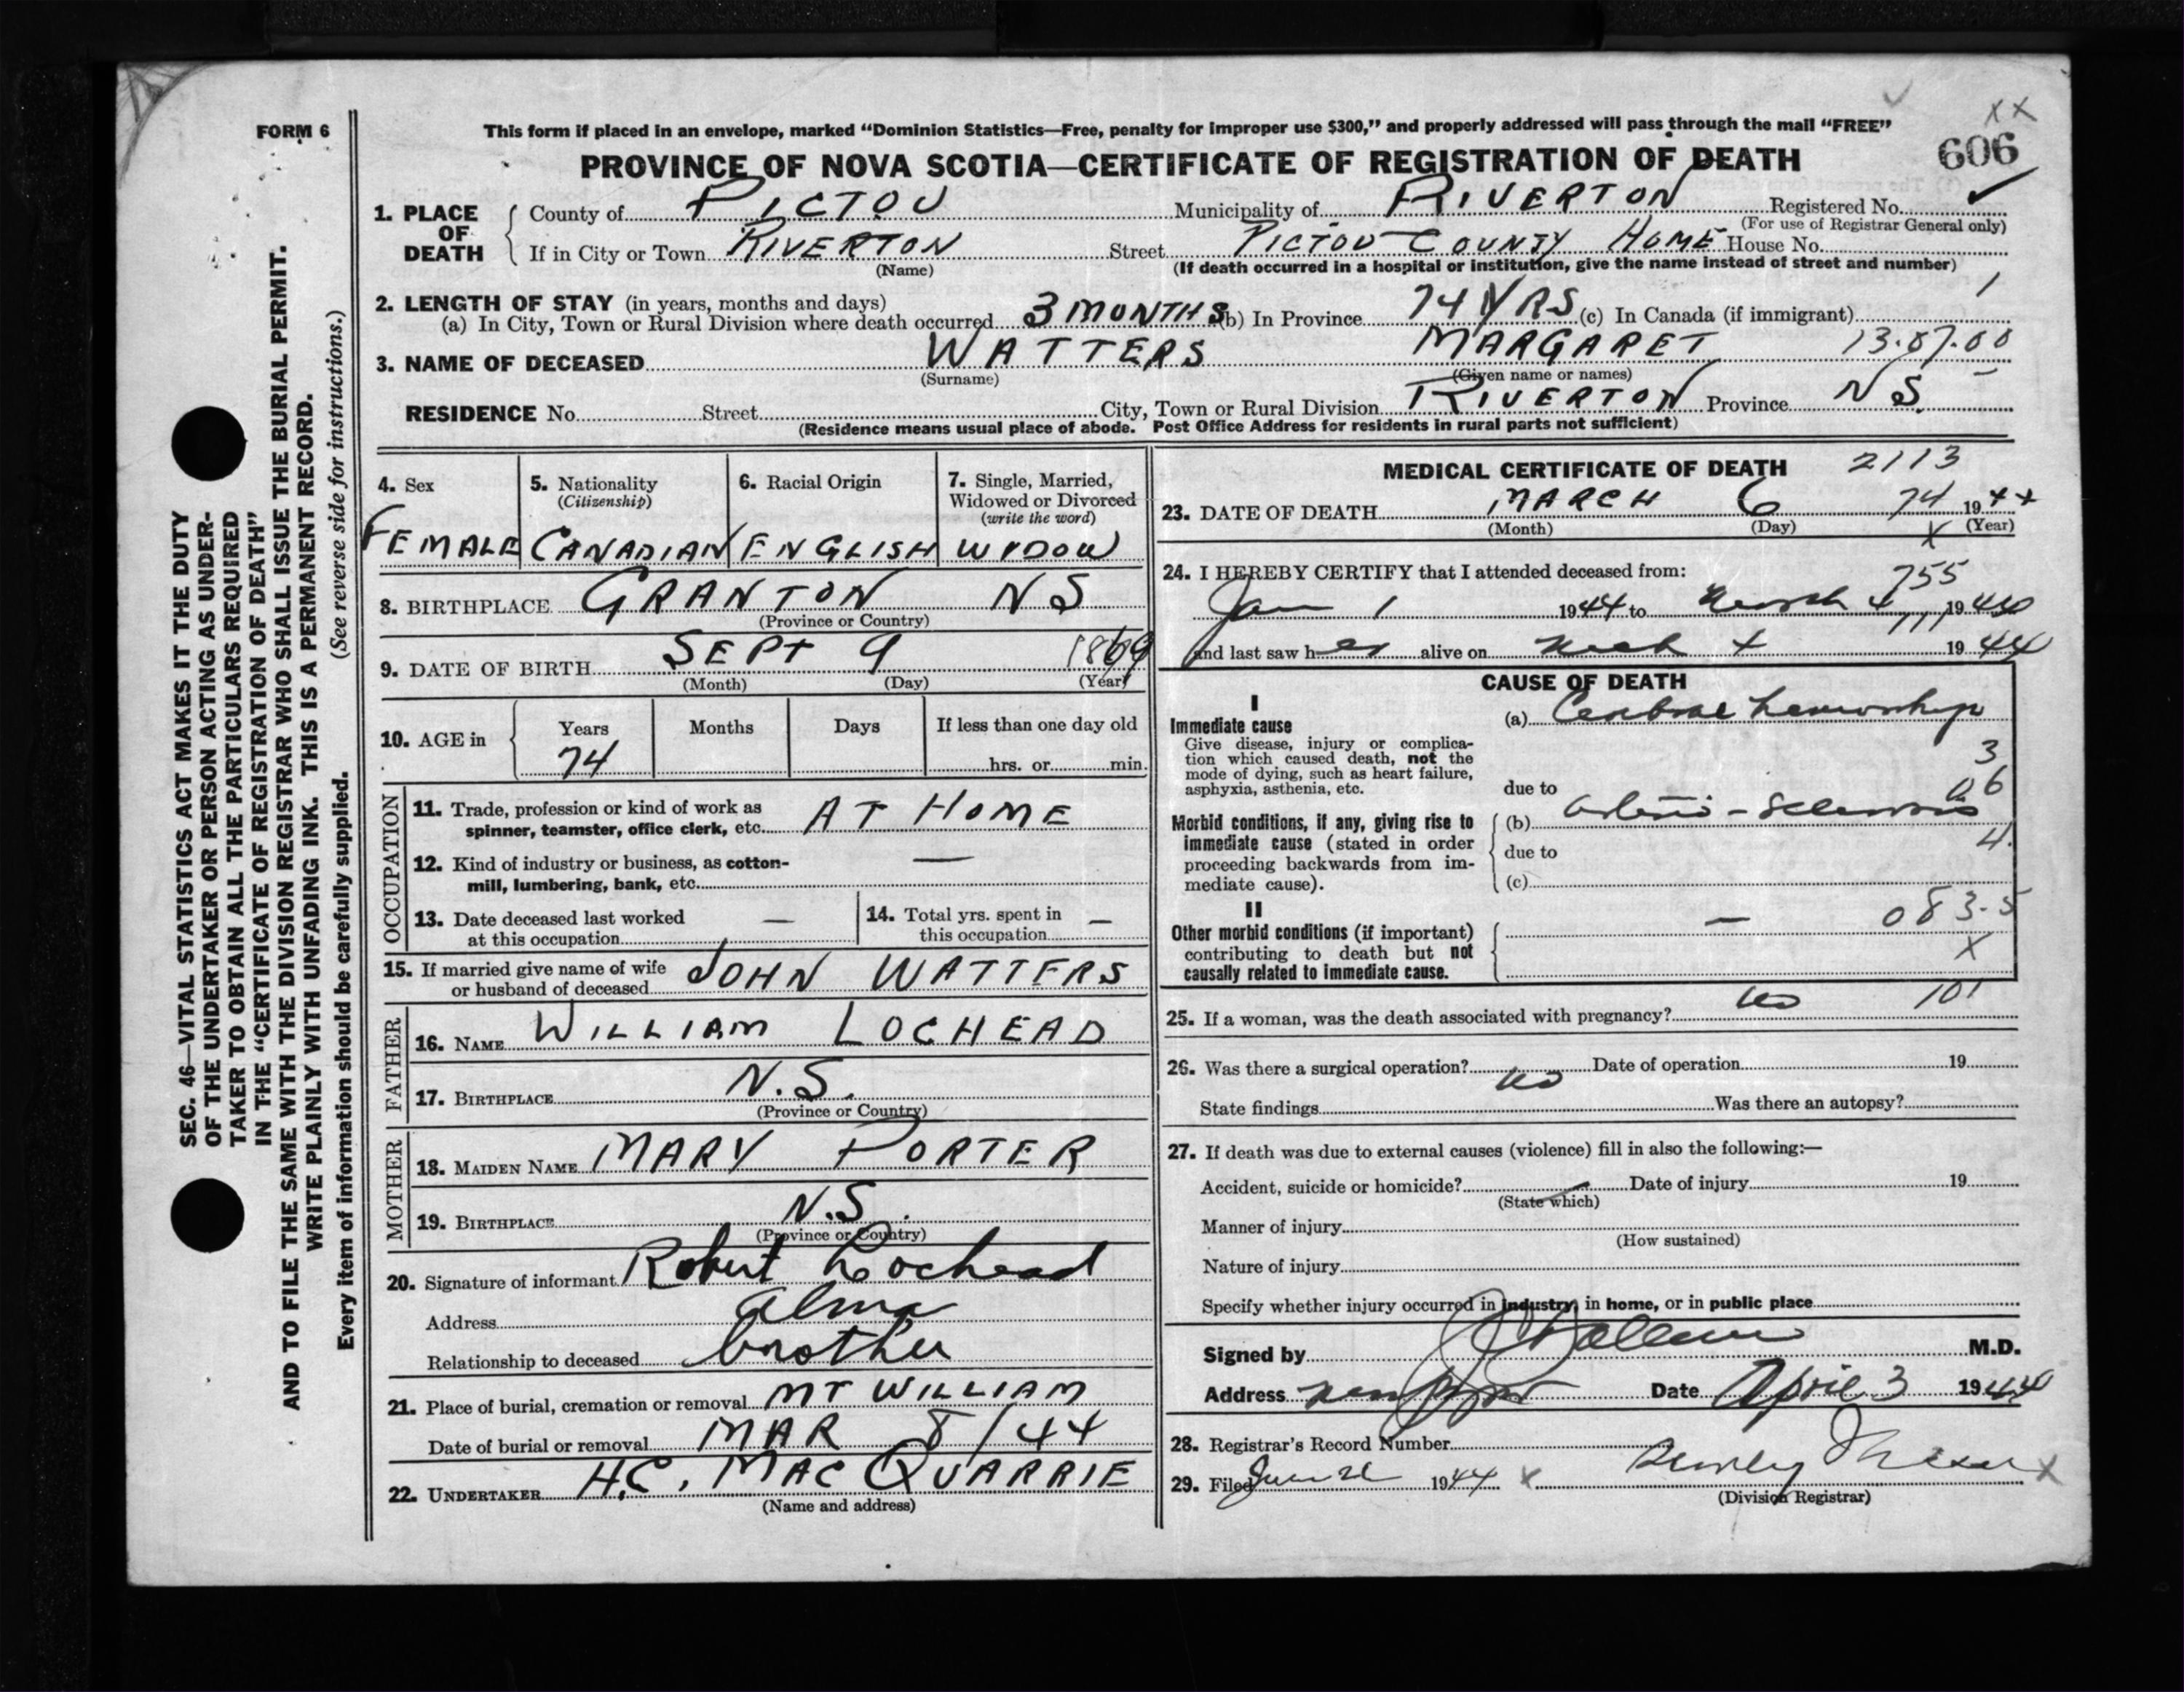 FORM 6
This form if placed in an envelope, marked "Dominion Statistics—Free, penalty for improper use $300," and properly addressed will pass through the mail "FREE"
XX
606
PROVINCE OF NOVA SCOTIA—CERTIFICATE OF REGISTRATION OF DEATH
1. PLACE OF DEATH
County of PICTOU Municipality of RIVERTON Registered No.
(For use of Registrar General only)
If in City or Town RIVERTON Street PICTOU COUNTY HOME House No.
(Name)
(If death occurred in a hospital or institution, give the name instead of street and number)
2. LENGTH OF STAY (in years, months and days)
(a) In City, Town or Rural Division where death occurred 3 MONTHS (b) In Province 74 YRS (c) In Canada (if immigrant)
3. NAME OF DECEASED WATTERS MARGARET 13.07.00
(Surname) (Given name or names)
RESIDENCE No. Street City, Town or Rural Division RIVERTON Province NS
(Residence means usual place of abode. Post Office Address for residents in rural parts not sufficient)
4. Sex
FEMALE
5. Nationality
(Citizenship)
CANADIAN
6. Racial Origin
ENGLISH
7. Single, Married,
Widowed or Divorced
(write the word)
WIDOW
8. BIRTHPLACE GRANTON NS
(Province or Country)
9. DATE OF BIRTH SEPT 9 1869
(Month) (Day) (Year)
10. AGE in
Years Months Days If less than one day old
74 hrs. or min.
OCCUPATION
11. Trade, profession or kind of work as
spinner, teamster, office clerk, etc. AT HOME
12. Kind of industry or business, as cotton-
mill, lumbering, bank, etc. —
13. Date deceased last worked
at this occupation —
14. Total yrs. spent in
this occupation —
15. If married give name of wife
or husband of deceased JOHN WATTERS
FATHER
16. NAME WILLIAM LOCHEAD
17. BIRTHPLACE N.S.
(Province or Country)
MOTHER
18. MAIDEN NAME MARY PORTER
19. BIRTHPLACE N.S.
(Province or Country)
20. Signature of informant Robert Lochead
Address Alma
Relationship to deceased brother
21. Place of burial, cremation or removal MT WILLIAM
Date of burial or removal MAR 8/44
22. UNDERTAKER H.C. MAC QUARRIE
(Name and address)
MEDICAL CERTIFICATE OF DEATH 2113
23. DATE OF DEATH MARCH 6 74 1944
(Month) (Day) (Year)
24. I HEREBY CERTIFY that I attended deceased from:
755
Jan 1 1944 to March 4 1944
and last saw her alive on March 4 1944
CAUSE OF DEATH
I
Immediate cause
Give disease, injury or complica-
tion which caused death, not the
mode of dying, such as heart failure,
asphyxia, asthenia, etc.
(a) Cerebral hemorrhage
3
06
due to
Morbid conditions, if any, giving rise to
immediate cause (stated in order
proceeding backwards from im-
mediate cause).
(b) arterio-sclerosis
4.
due to
(c)
II
Other morbid conditions (if important)
contributing to death but not
causally related to immediate cause.
— 083.5
X
25. If a woman, was the death associated with pregnancy? no 101
26. Was there a surgical operation? no Date of operation 19
State findings Was there an autopsy?
27. If death was due to external causes (violence) fill in also the following:—
Accident, suicide or homicide? Date of injury 19
(State which)
Manner of injury
(How sustained)
Nature of injury
Specify whether injury occurred in industry, in home, or in public place
Signed by M.D.
Address Date April 3 1944
28. Registrar's Record Number
29. Filed 1944 x X
(Division Registrar)
SEC. 46—VITAL STATISTICS ACT MAKES IT THE DUTY
OF THE UNDERTAKER OR PERSON ACTING AS UNDER-
TAKER TO OBTAIN ALL THE PARTICULARS REQUIRED
IN THE "CERTIFICATE OF REGISTRATION OF DEATH"
AND TO FILE THE SAME WITH THE DIVISION REGISTRAR WHO SHALL ISSUE THE BURIAL PERMIT.
WRITE PLAINLY WITH UNFADING INK. THIS IS A PERMANENT RECORD.
Every item of information should be carefully supplied. (See reverse side for instructions.)